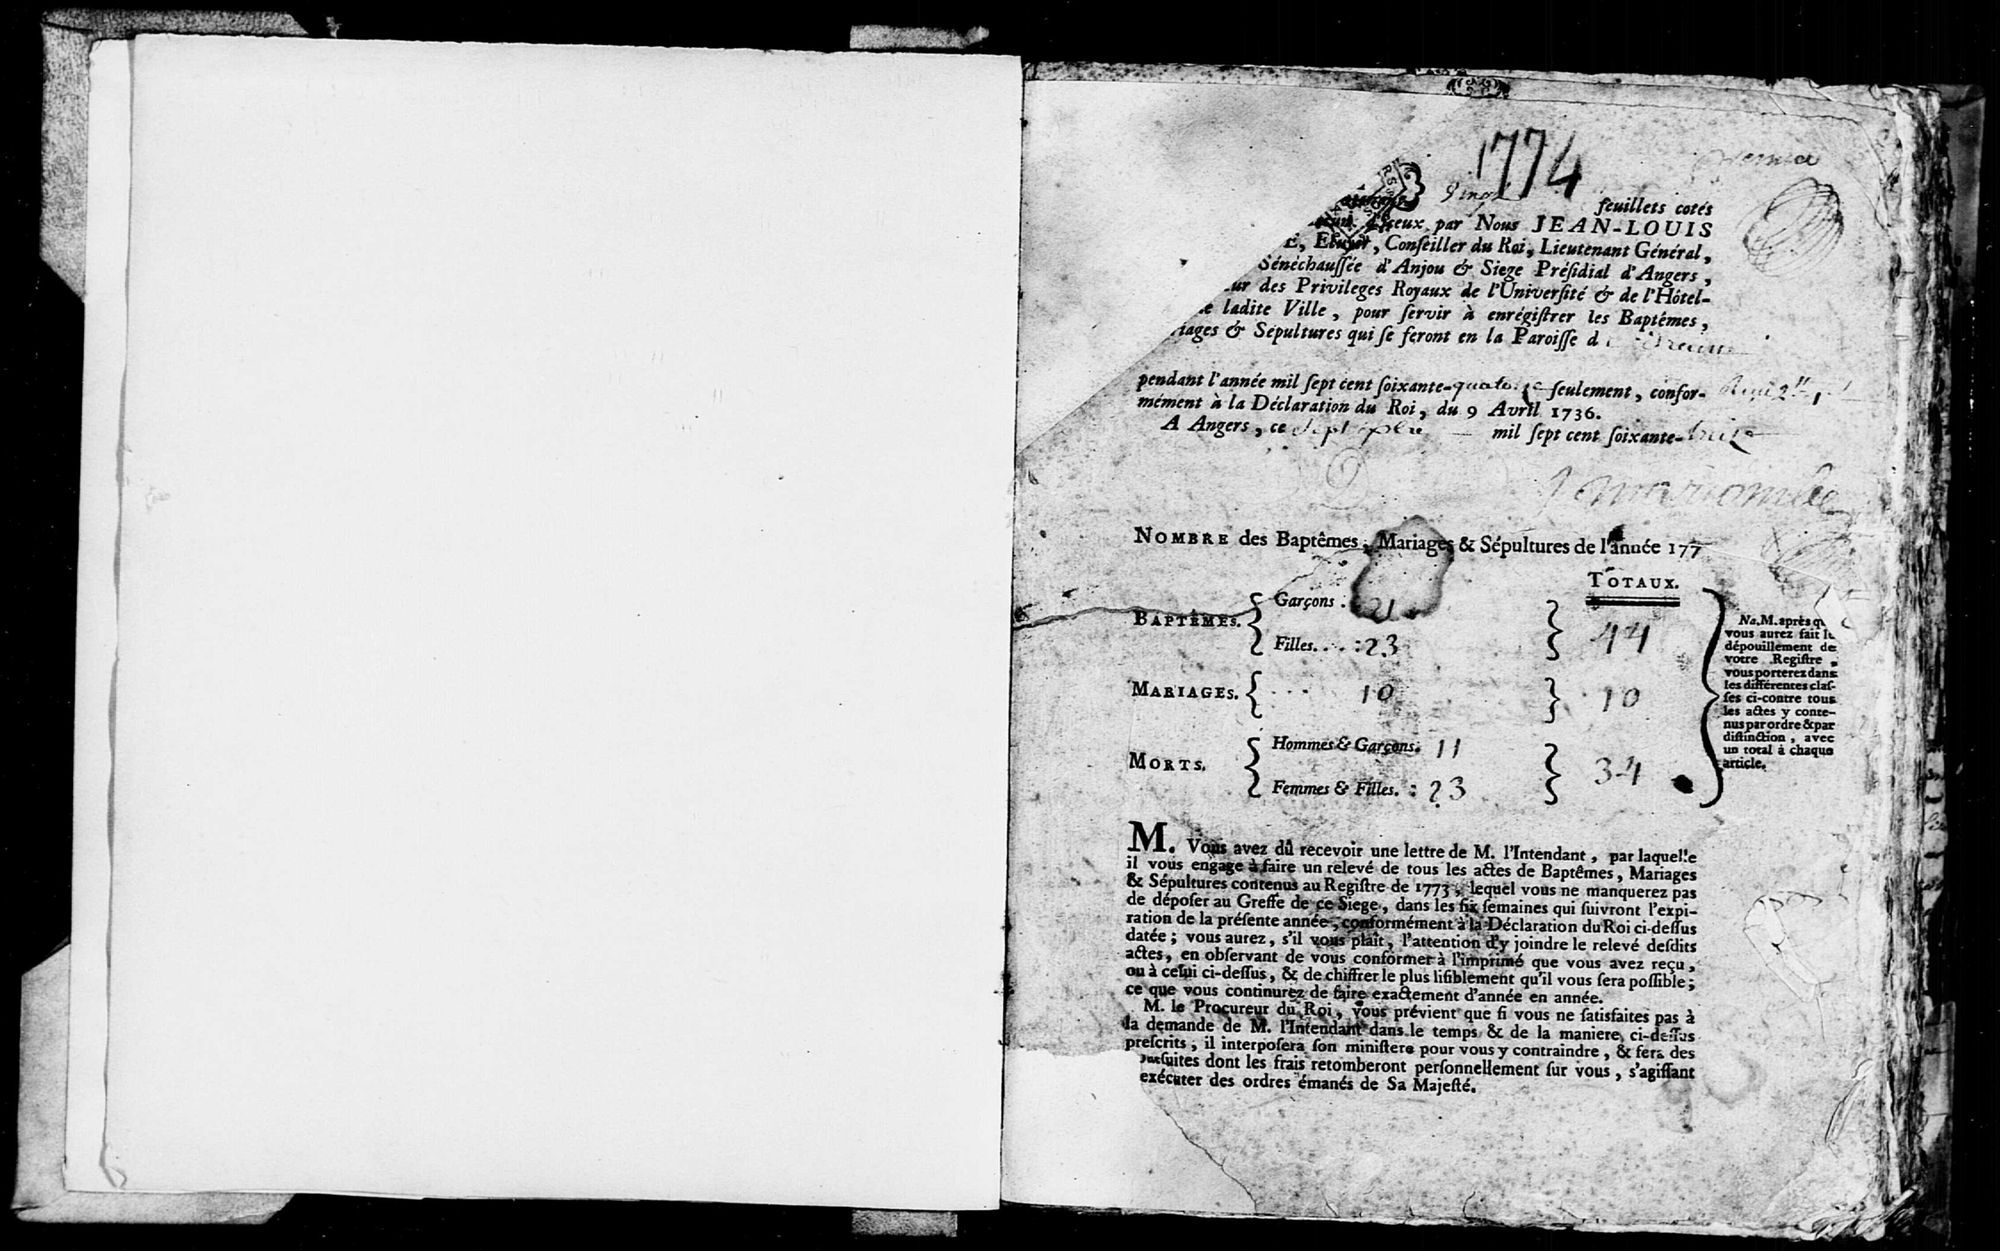 1774
feuillets cotés
par Nous JEAN-LOUIS
E, Ecuyer, Conſeiller du Roi, Lieutenant Général,
Sénéchauſſée d'Anjou & Siege Préſidial d'Angers,
ur des Privileges Royaux de l'Univerſité & de l'Hôtel-
ladite Ville, pour ſervir à enrégiſtrer les Baptêmes,
iages & Sépultures qui ſe feront en la Paroiſſe d
pendant l'année mil ſept cent ſoixante-quatorze ſeulement, confor-
mément à la Déclaration du Roi, du 9 Avril 1736.
A Angers, ce mil ſept cent ſoixante-treize
NOMBRE des Baptêmes, Mariages & Sépultures de l'année 177
TOTAUX.
BAPTÊMES. Garçons . 21
Filles. . . . : 23 44
MARIAGES. . . . 10 10
MORTS. Hommes & Garçons. 11
Femmes & Filles. : 23 34
Na. M. après q
vous aurez fait le
dépouillement de
votre Regiſtre,
vous porterez dans
les différentes claſ-
ſes ci-contre tous
les actes y conte-
nus par ordre & par
diſtinction, avec
un total à chaque
article.
M. Vous avez dû recevoir une lettre de M. l'Intendant, par laquelle
il vous engage à faire un relevé de tous les actes de Baptêmes, Mariages
& Sépultures contenus au Regiſtre de 1773, lequel vous ne manquerez pas
de dépoſer au Greffe de ce Siege, dans les ſix ſemaines qui ſuivront l'expi-
ration de la préſente année, conformément à la Déclaration du Roi ci-deſſus
datée; vous aurez, s'il vous plaît, l'attention d'y joindre le relevé deſdits
actes, en obſervant de vous conformer à l'imprimé que vous avez reçu,
ou à celui ci-deſſus, & de chiffrer le plus liſiblement qu'il vous ſera poſſible;
ce que vous continurez de faire exactement d'année en année.
M. le Procureur du Roi, vous prévient que ſi vous ne ſatisfaites pas à
la demande de M. l'Intendant dans le temps & de la maniere ci-deſſus
preſcrits, il interpoſera ſon miniſtere pour vous y contraindre, & fera des
pourſuites dont les frais retomberont perſonnellement ſur vous, s'agiſſant
exécuter des ordres émanés de Sa Majeſté.